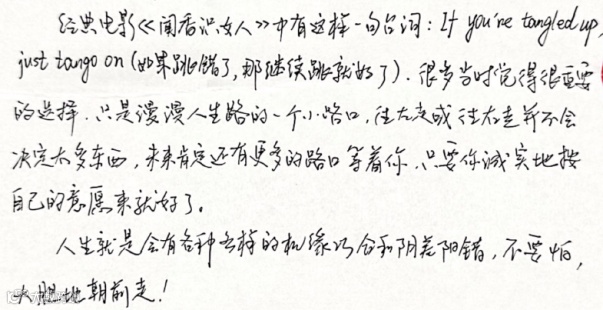 经典电影《闻香识女人》中有这样一句台词：If you're tangled up,
just tango on (如果跳错了,那继续跳就好了). 很多当时觉得很重要
的选择,只是漫漫人生路的一个小路口,往左走或往右走并不会
决定太多东西,未来肯定还有更多的路口等着你,只要你诚实地按
自己的意愿来就好了。
人生就是会有各种各样的机缘巧合和阴差阳错,不要怕,
大胆地朝前走!